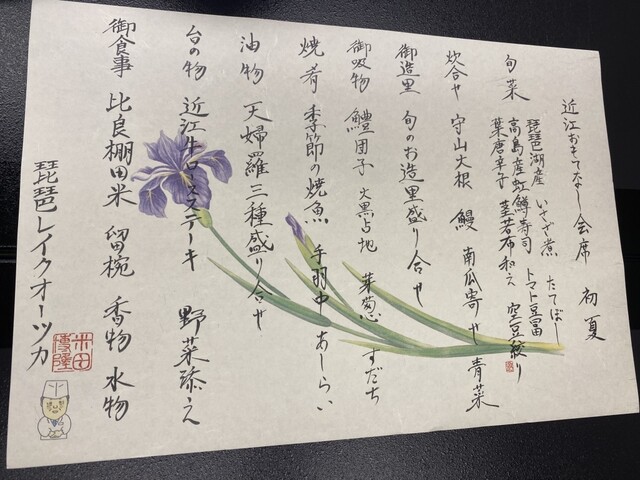 近江おもてなし会席 初夏
旬菜 琵琶湖産 いさざ煮 たてぼし
高島産虹鱒寿司 トマト豆富
葉唐辛子 茎若布和え 空豆絞り
炊合せ 守山大根 鰻 南瓜寄せ 青菜
御造里 旬のお造里盛り合せ
御吸物 鱧団子 大黒占地 菜菊心 すだち
焼肴 季節の焼魚 手羽中 あしらい
油物 天婦羅三種盛り合せ
台の物 近江牛ステーキ 野菜添え
御食事 比良棚田米 留椀 香物 水物
琵琶レイクオーツカ
米田
博隆